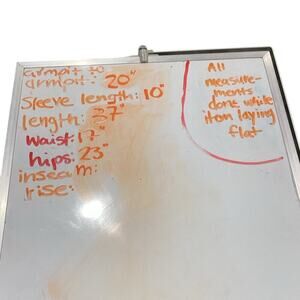 armpit to
armpit: 20"
Sleeve length: 10"
length: 37"
waist: 17"
hips: 23"
inseam:
rise:
All
measure-
ments
done while
item laying
flat